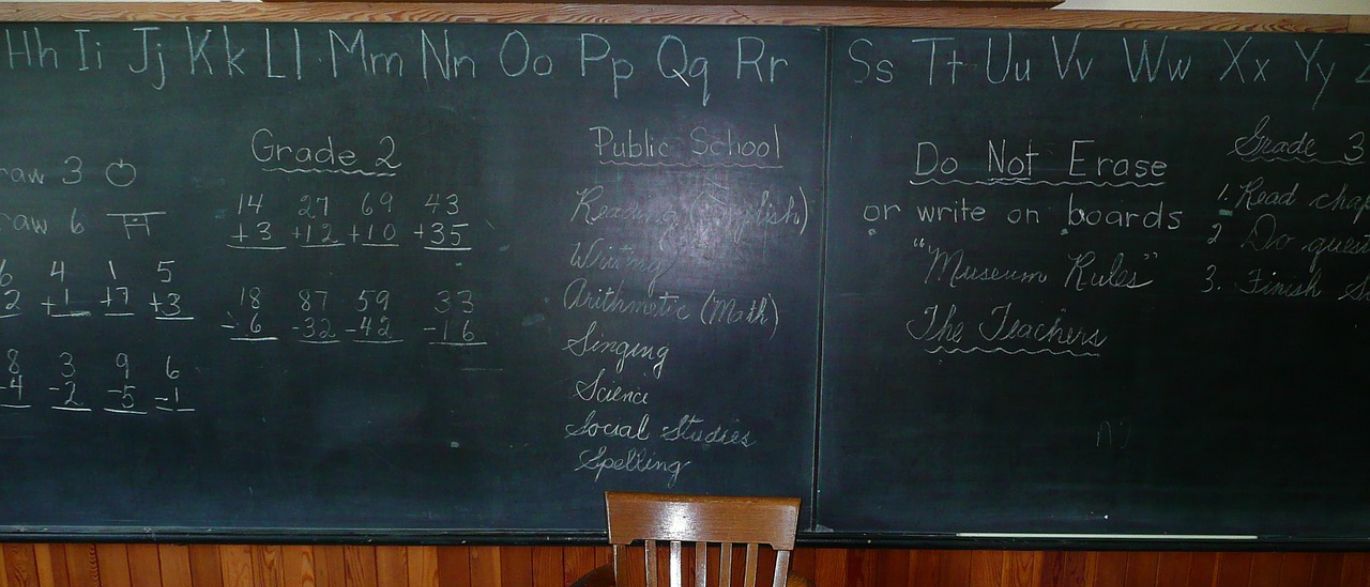 Hh Ii Jj Kk Ll Mm Nn Oo Pp Qq Rr Ss Tt Uu Vv Ww Xx Yy
3
6
4 1 5
2 +1 +7 +3
8 3 9 6
-4 -2 -5 -1
Grade 2
14 27 69 43
+3 +12 +10 +35
18 87 59 33
-6 -32 -42 -16
Public School
Reading (English)
Writing
Arithmetic (Math)
Singing
Science
Social Studies
Spelling
Do Not Erase
or write on boards
"Museum Rules"
The Teachers
Grade 3
1. Read
2 Do
3. Finish